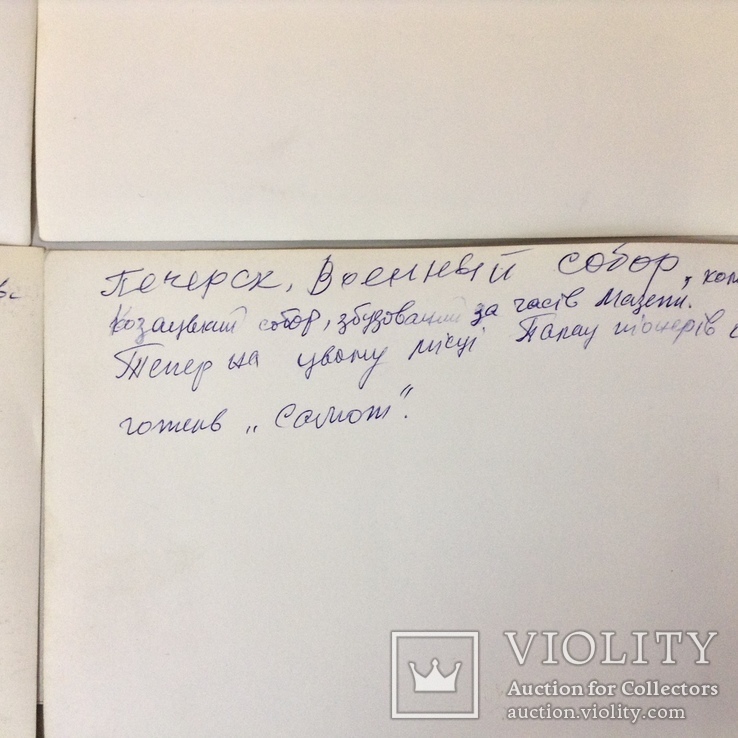 Печерск, Военный собор, ком
Козацький собор, збудований за часів Мазепи.
Тепер на цьому місці Палац піонерів
готель „Салют".
VIOLITY
Auction for Collectors
auction.violity.com